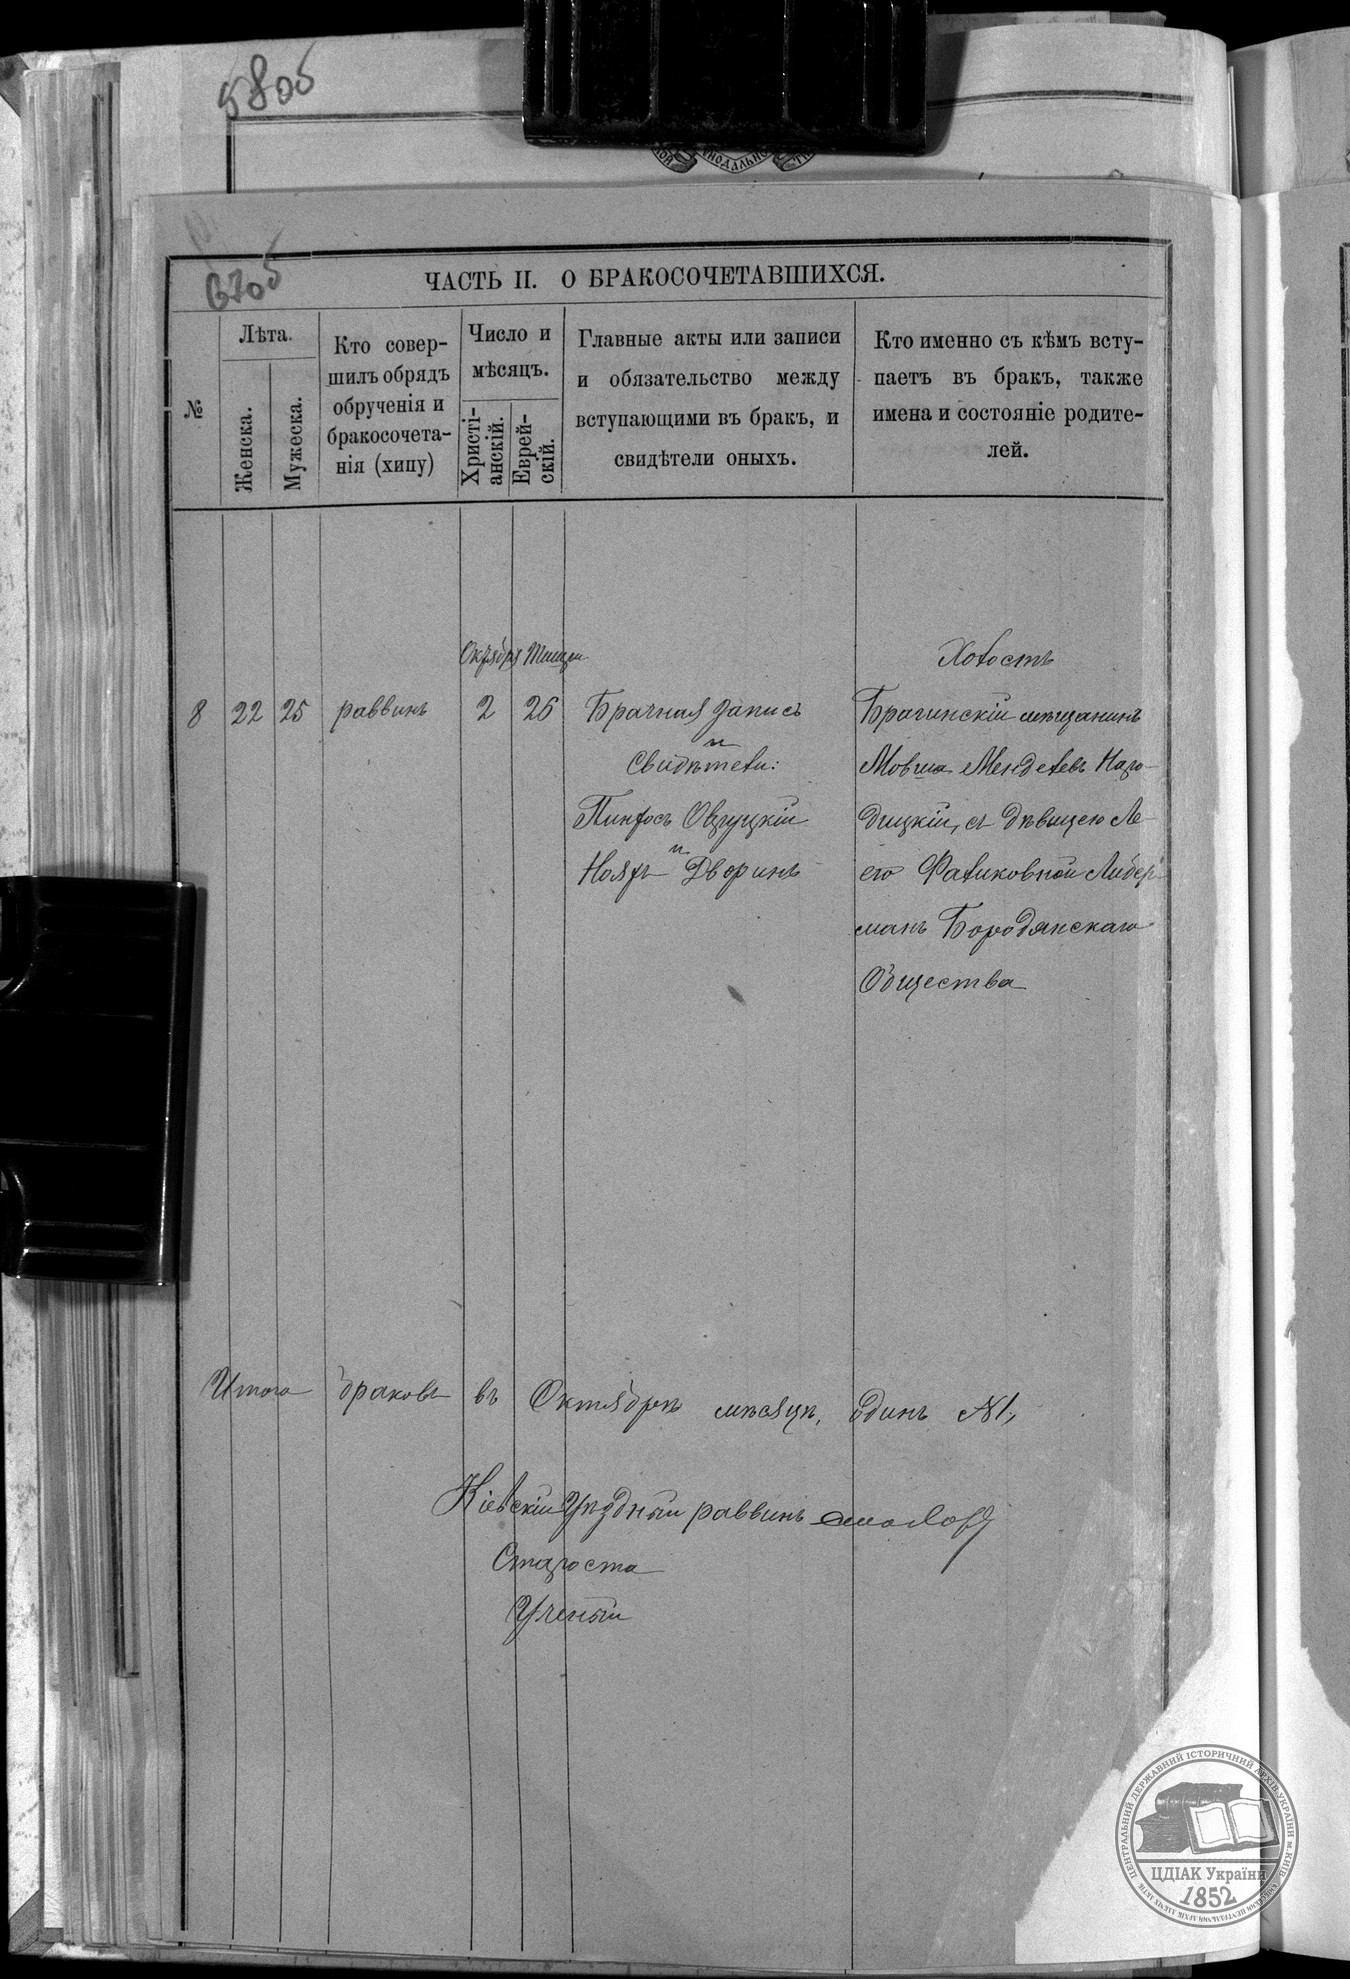 580б
670б
ЧАСТЬ II. О БРАКОСОЧЕТАВШИХСЯ.
№
Лѣта.
Женска.
Мужеска.
Кто совер-
шилъ обрядъ
обрученія и
бракосочета-
нія (хипу)
Число и
мѣсяцъ.
Христі-
анскій.
Еврей-
скій.
Главные акты или записи
и обязательство между
вступающими въ бракъ, и
свидѣтели оныхъ.
Кто именно съ кѣмъ всту-
паетъ въ бракъ, также
имена и состояніе родите-
лей.
Октября Тишри
Холостъ
8 22 25 раввинъ 2 26 Брачная запись
и
Свидѣтели:
Пинхосъ Овруцкій
и
Нояхъ Дворинъ
Брагинскій мѣщанинъ
Мовша Менделевъ Наро-
дицкій, съ дѣвицею Ле-
ею Фаликовной Либер-
манъ Бородянскаго
Общества
Итого браковъ въ Октябрѣ мѣсяцѣ, одинъ №1,
Кіевскій Уѣздный раввинъ
Староста
Ученый
ЦЕНТРАЛЬНИЙ ДЕРЖАВНИЙ ІСТОРИЧНИЙ АРХІВ УКРАЇНИ м. КИЇВ
ЦДІАК України
1852